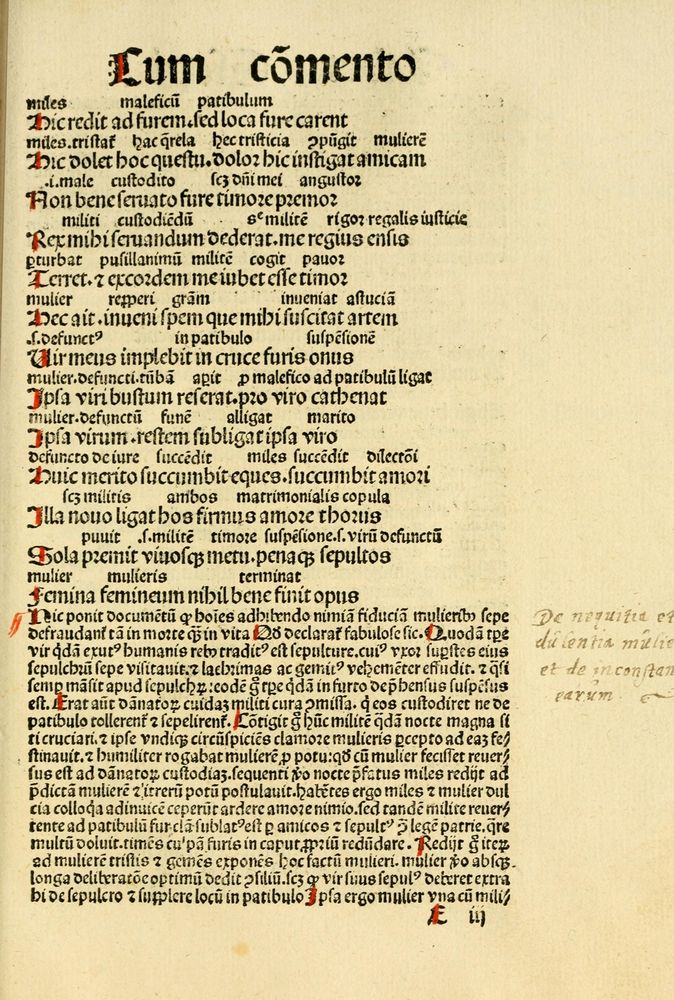 Cum cōmento
miles maleficū patibulum
Hic redit ad furem.sed loca fure carent
miles.tristat̄ hac q̄rela hec tristicia ꝓpūgit mulierē
Hic dolet hoc questu.dolor hic instigat amicam
.i.male custodito scꝫ dn̄i mei angustor
Non bene seruato fure timore premor
militi custodiēdū sᶜ militē rigor regalis iusticie
Rex mihi seruandum dederat.me regius ensis
ꝑturbat pusillanimū militē cogit pauor
Terret.⁊ excordem me iubet esse timor
mulier reꝑperi grām inueniat astuciā
Hec ait.inueni spem que mihi suscitat artem
.s.defunctꝰ in patibulo suspēsionē
Uir meus implebit in cruce furis onus
mulier.defuncti.tūbā aꝑit ꝓ malefico ad patibulū ligat
Ipsa viri bustum reserat.pro viro cathenat
mulier.defunctū funē alligat marito
Ipsa virum.restem subligat ipsa viro
defuncto de iure succēdit miles succēdit dilectōi
Huic merito succumbit eques.succumbit amori
scꝫ militis ambos matrimonialis copula
Illa nouo ligat hos firmus amore thorus
puuit .s.militē timore suspēsione.s.virū defunctū
Sola premit viuosqꝫ metu.penaqꝫ sepultos
mulier mulieris terminat
Femina femineum nihil bene finit opus
Hic ponit documētū ꝙ hoīes adhibendo nimiā fiduciā mulieribꝰ sepe
defraudant̄ tā in morte q̄ꝫ in vita Qđ declarat̄ fabulose sic. Quodā tꝑe
vir qͥdā exutꝰ humanis rebꝰ traditꝰ est sepulture.cuiꝰ vxor suꝑstes eius
sepulchrū sepe visitauit.⁊ lachrimas ac gemitꝰ vehemēter effudit. ⁊ qͣsi
semꝑ māsit apud sepulchꝝ:eodē g̊ tꝑe qͥdā in furto depͥhensus suspēsus
est. Erat aūt dānatoꝝ cuidaꝫ militi cura ꝯmissa. qͥ eos custodiret ne de
patibulo tollerent̄ ⁊ sepelirent̄. Cōtigit g̊ hūc militē qͣdā nocte magna si
ti cruciari.⁊ ipse vndiqꝫ circūspiciēs clamore mulieris ꝑcepto ad eaꝫ fe⸗
stinauit.⁊ humiliter rogabat mulierē ꝓ potu:qđ cū mulier fecisset reuer⸗
sus est ad dānatoꝝ custodiaꝫ.sequenti ꝟo nocte pͥfatus miles redijt ad
pͥdictam mulierē ⁊ iterū potū postulauit.habētes ergo miles ⁊ mulier dul
cia colloqͥa adinuicē ceperūt ardere amore nimio.sed tandē milite reuer⸗
tente ad patibulū fur clā sublatꝰ est ꝑ amicos ⁊ sepultꝰ p̄ legē patrie.qͣre
multū doluit.timēs culpam furis in caput ꝓpriū redūdare. Redijt g̊ iteꝝ
ad mulierē tristis ⁊ gemēs exponēs hoc factū mulieri. mulier ꝟo absqꝫ
longa deliberatōe optimū dedit ꝯsiliū.scꝫ ꝙ vir suus sepulꝰ deberet extra
hi de sepulcro ⁊ supplere locū in patibulo Ipsa ergo mulier vna cū mili⸗
E iij
De nequitia et
mulie
et de inconstan
earum